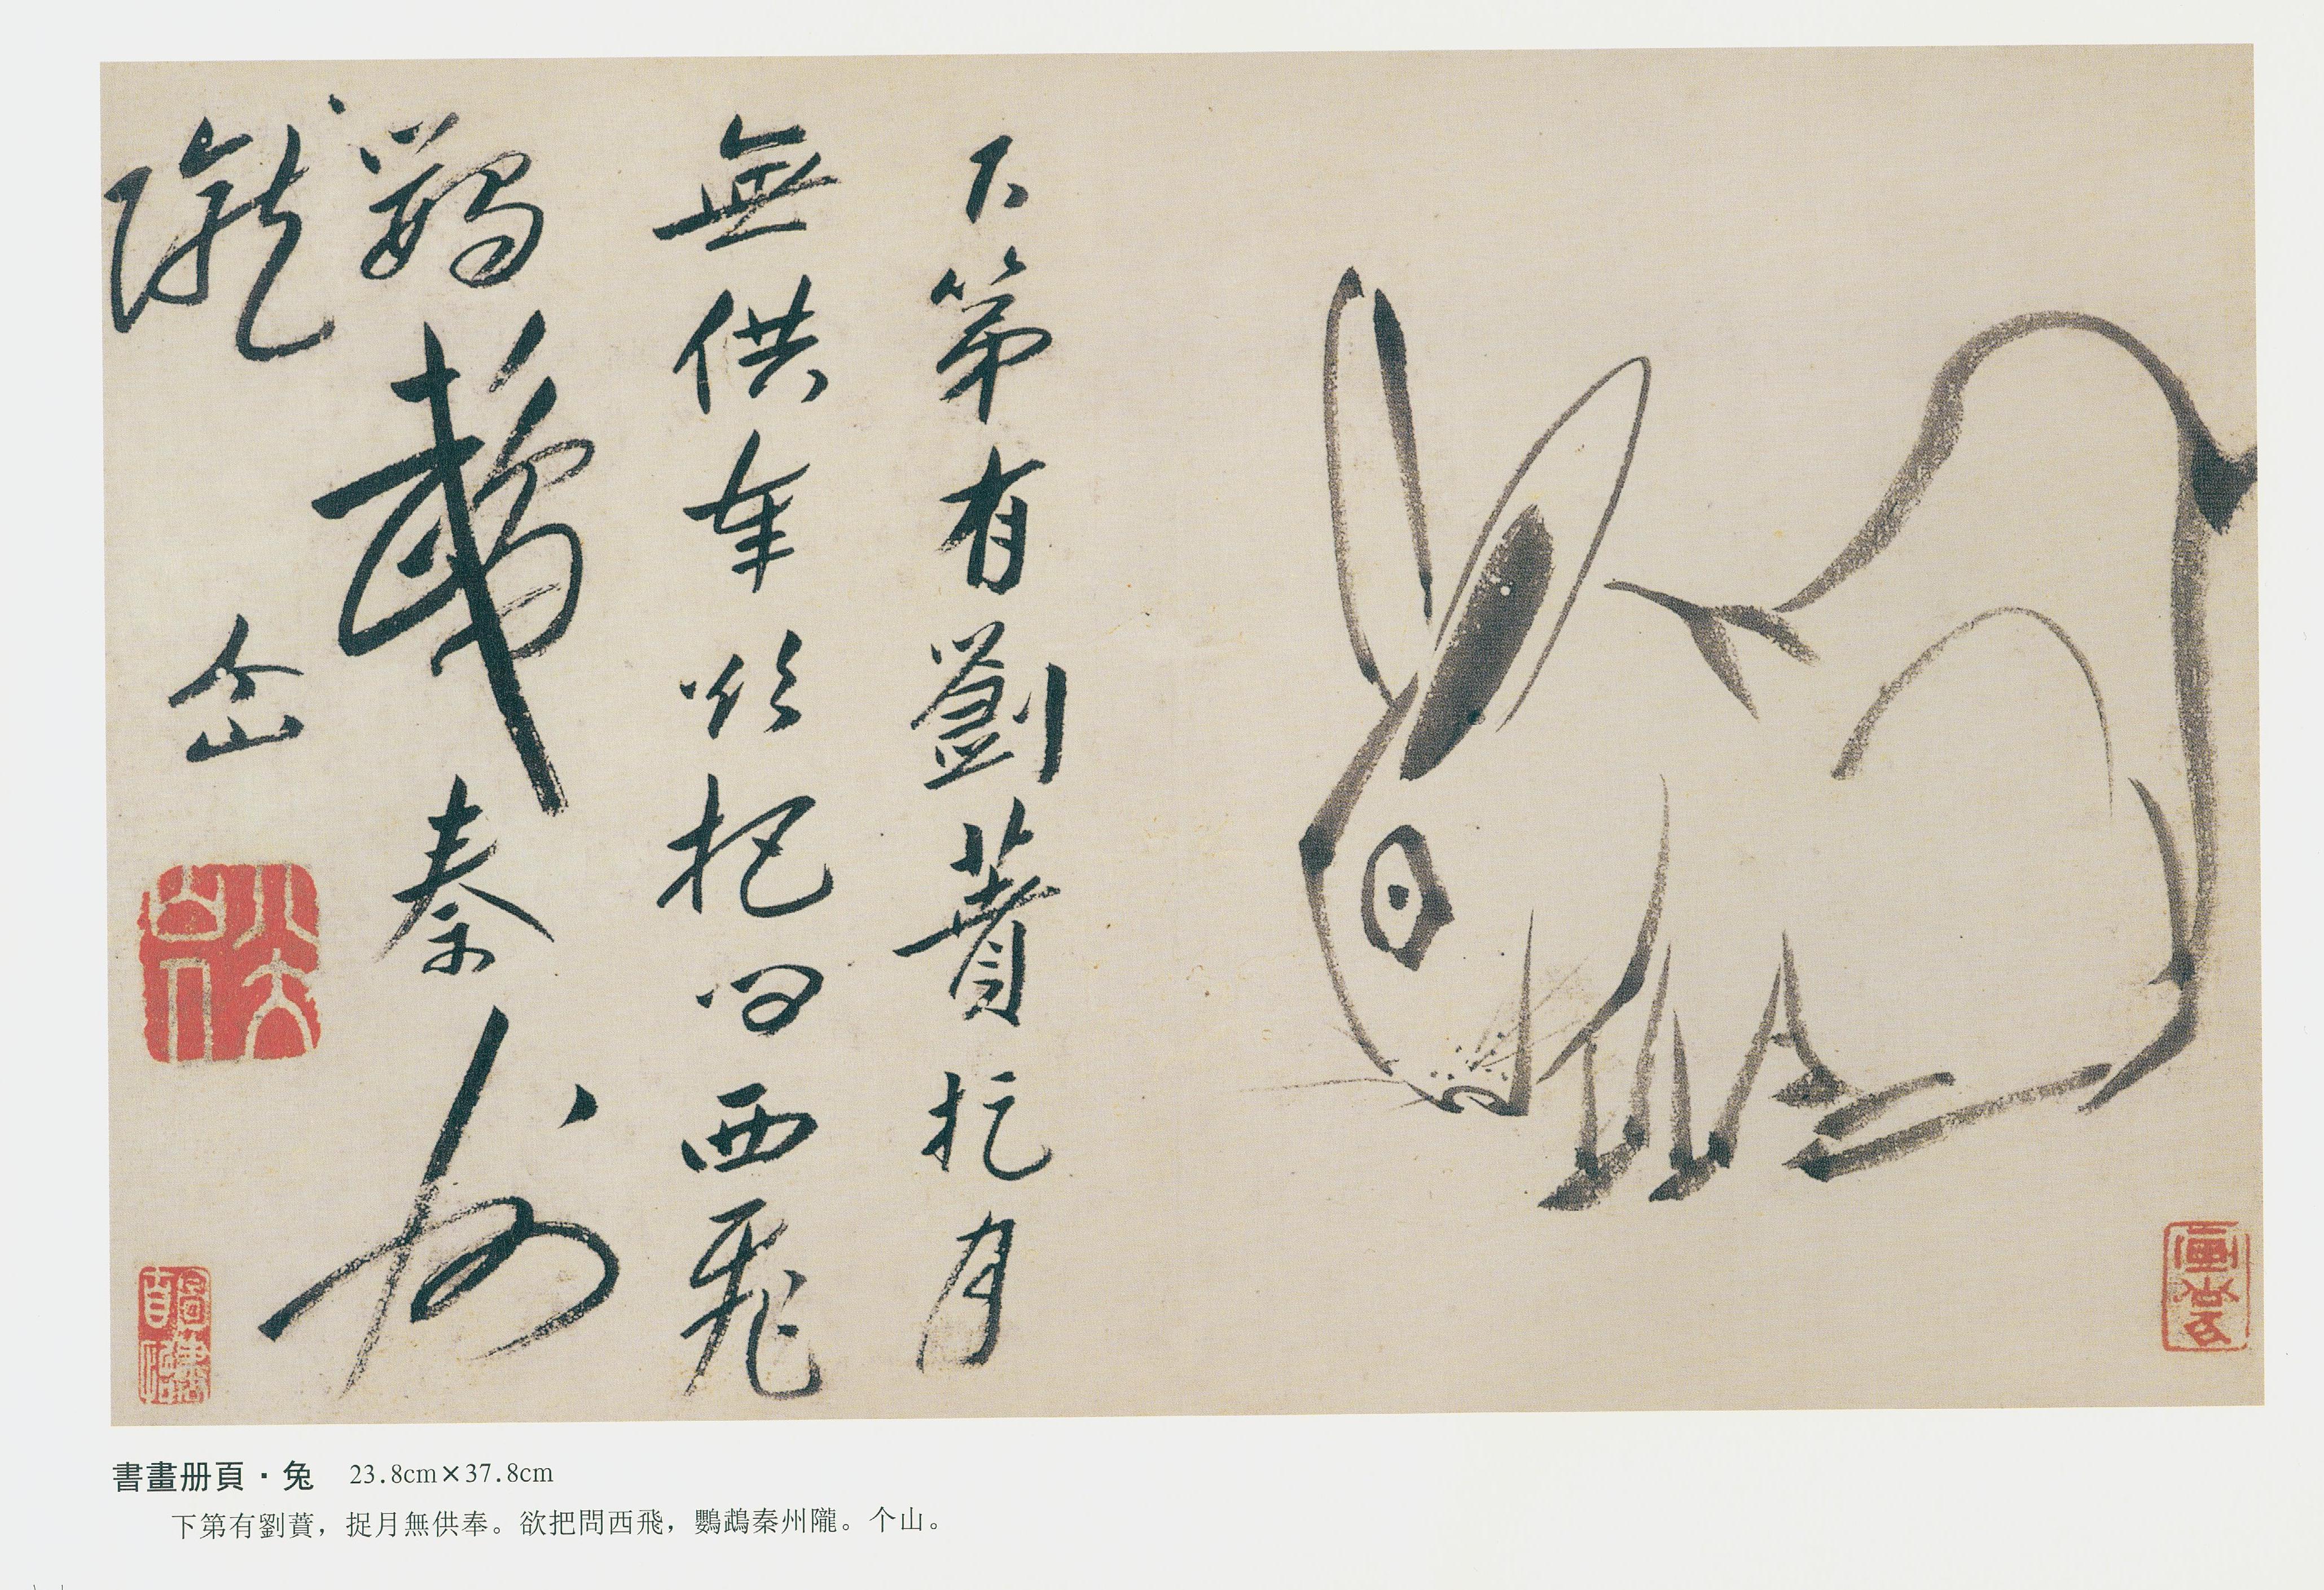 下第有劉蕡捉月
無供奉欲把問西飛
鸚鵡秦州
隴
个山
書畫册頁·兔 23.8cm×37.8cm
下第有劉蕡，捉月無供奉。欲把問西飛，鸚鵡秦州隴。个山。